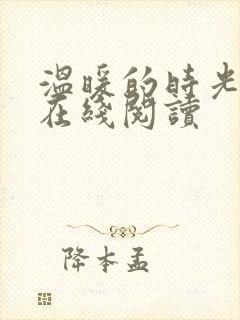 温暖的時光
在綫閱讀
降本孟